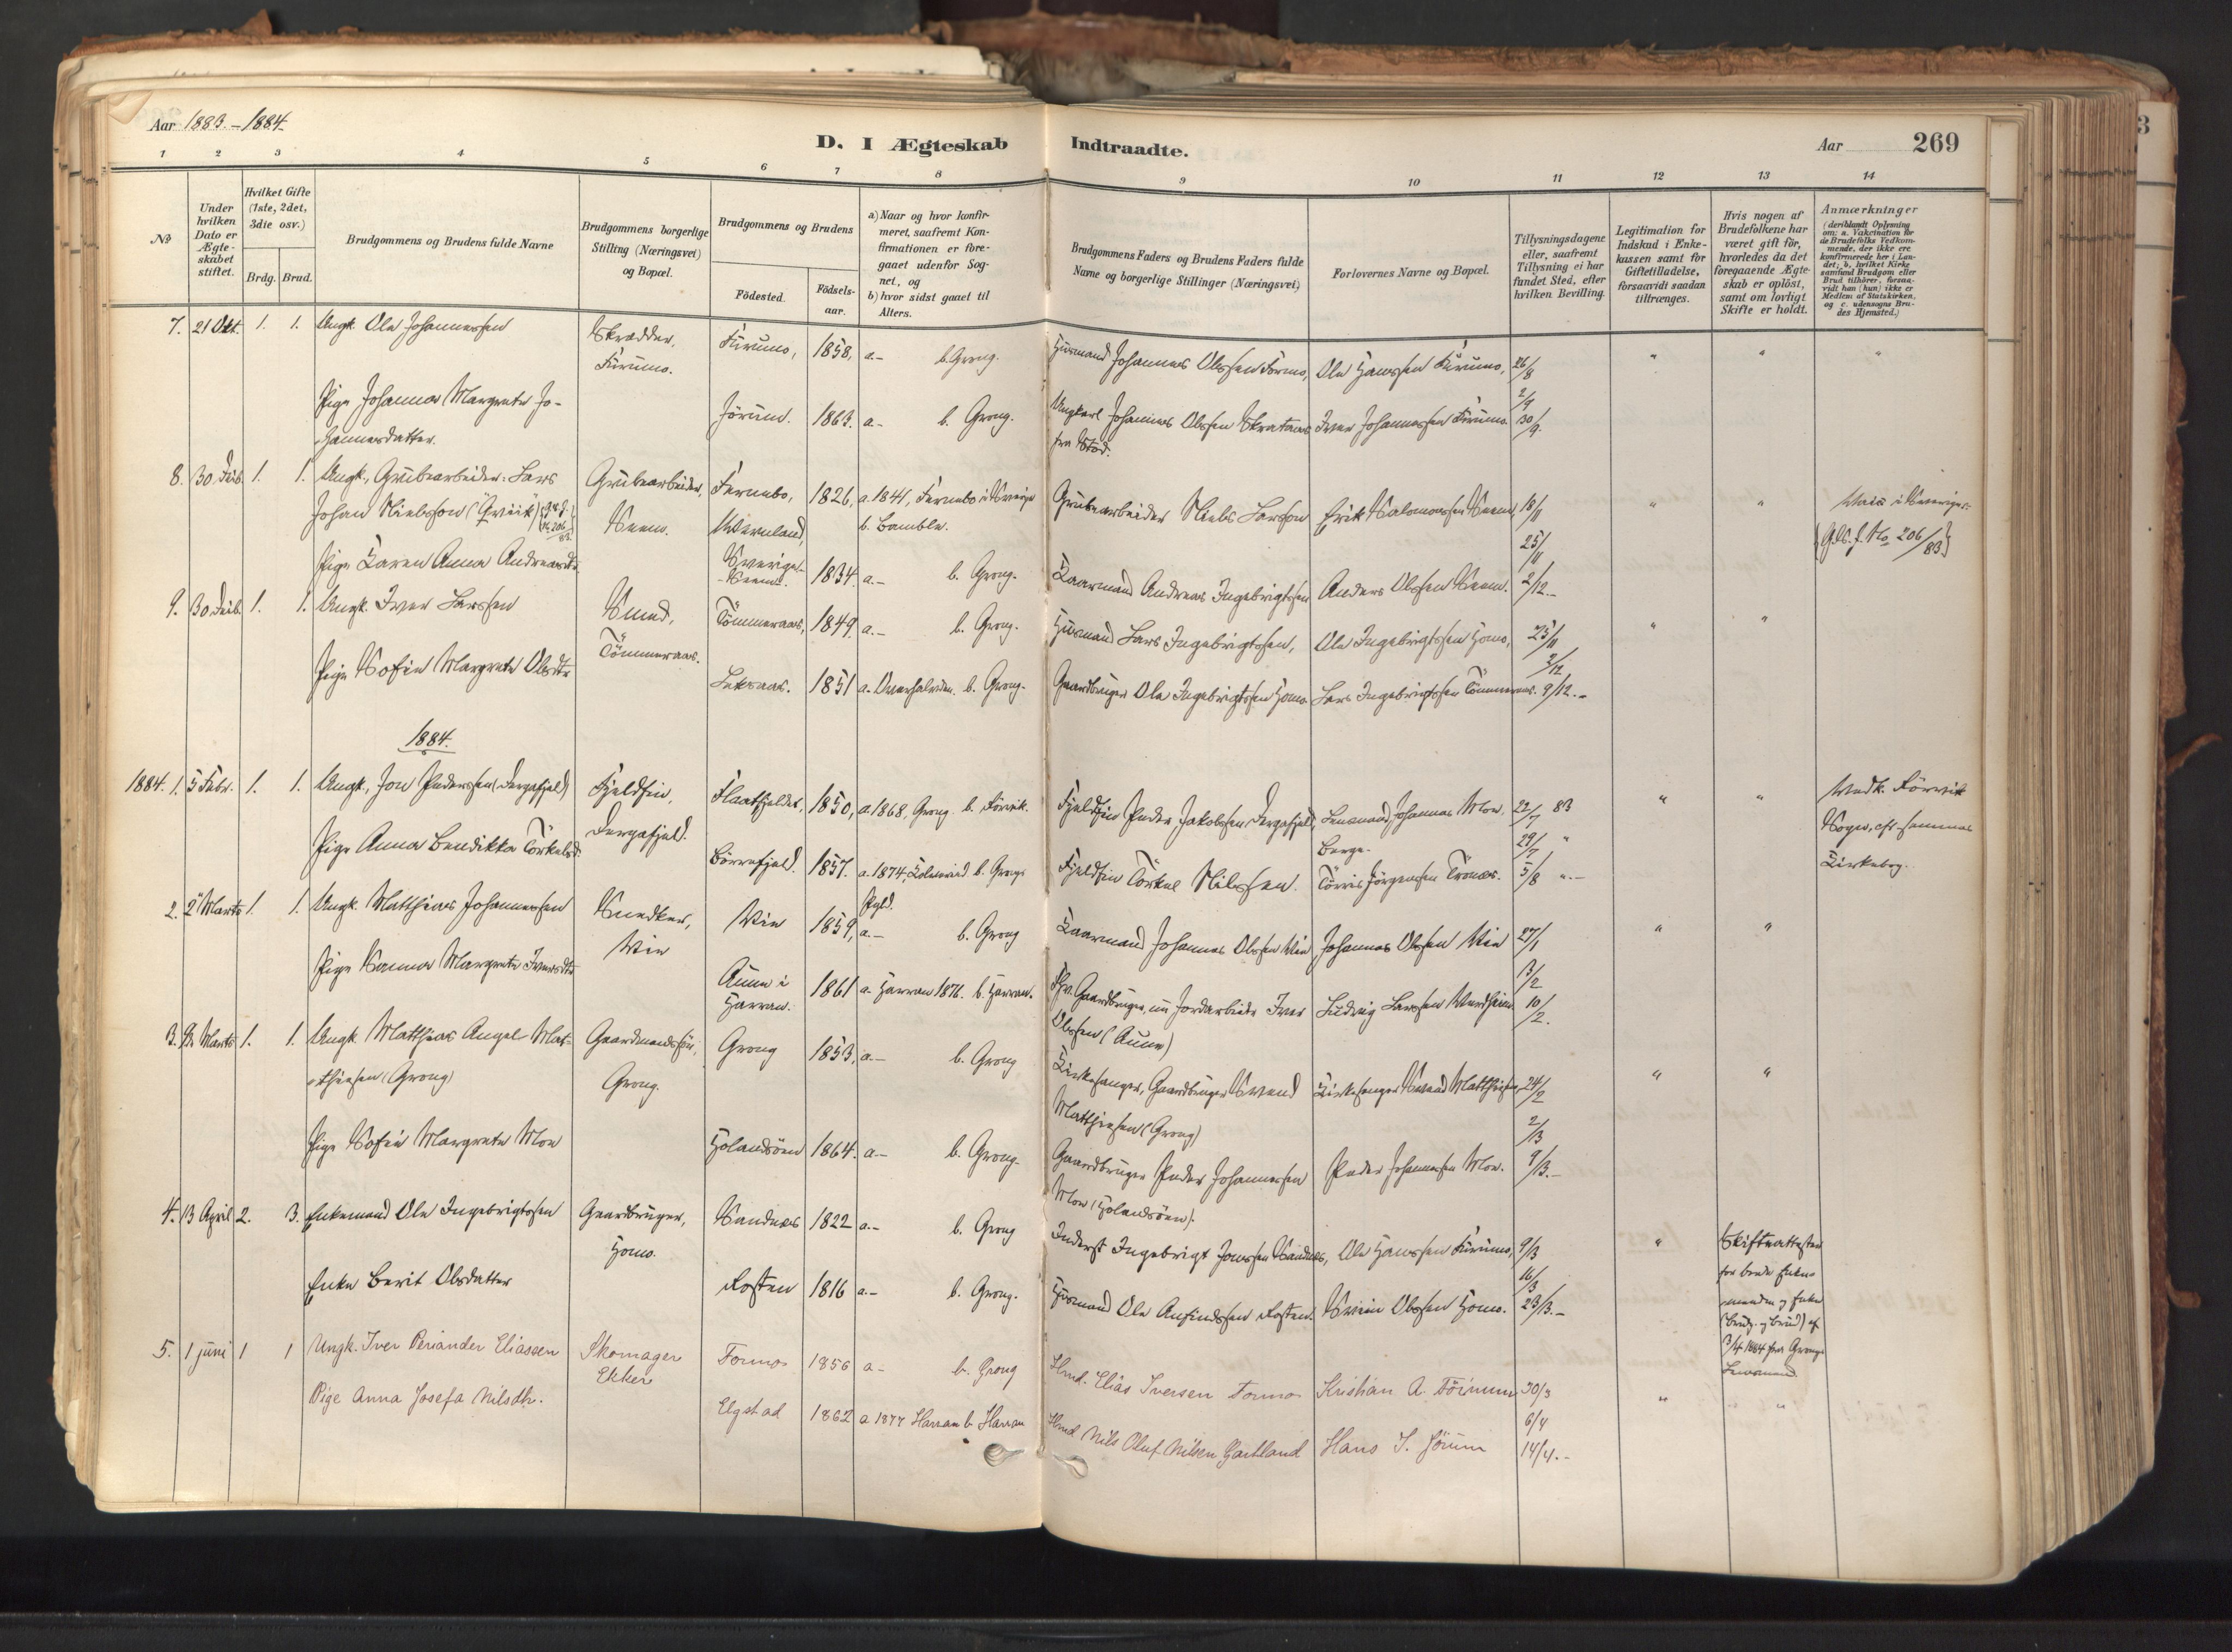 Aar 1883.-1884.
D. I Ægteskab Indtraadte.
Aar 269
1 2 3 4 5 6 7 8 9 10 11 12 13 14
No
Under hvilken Dato er Ægteskabet stiftet.
Hvilket Gifte (1ste, 2det, 3die osv.)
Brdg. Brud.
Brudgommens og Brudens fulde Navne
Brudgommens borgerlige Stilling (Næringsvei) og Bopæl.
Brudgommens og Brudens
Födested.
Födsels-aar.
a) Naar og hvor konfirmeret, saafremt Konfirmationen er foregaaet udenfor Sognet, og
b) hvor sidst gaaet til Alters.
Brudgommens Faders og Brudens Faders fulde Navne og borgerlige Stillinger (Næringsvei)
Forlovernes Navne og Bopæl.
Tillysningsdagene eller, saafremt Tillysning ei har fundet Sted, efter hvilken Bevilling.
Legitimation for Indskud i Enkekassen samt for Giftetilladelse, forsaavidt saadan tiltrænges.
Hvis nogen af Brudefolkene har været gift för, hvorledes da det foregaaende Ægteskab er oplöst, samt om lovligt Skifte er holdt.
Anmærkninger
(deriblandt Oplysning om: a. Vakcination for de Brudefolks Vedkommende, der ikke ere konfirmerede her i Landet; b. hvilket Kirkesamfund Brudgom eller Brud tilhörer, forsaavidt han (hun) ikke er Medlem af Statskirken, og c. udensogns Brudes Hjemsted.)
7. 21 Okt. 1. 1. Ungk. Ole Johannessen Skrædder, Furumo. Furumo, 1858, a.- b. Grong. Husmand Johannes Olssen Formo, Ole Hanssen Furumo, 26/8 " " "
Pige Johanna Margrete Johannesdatter. Jörum. 1863. a.- b. Grong. Ungkarl Johannes Olssen Skrataas fra Stod. Iver Johannessen Furumo. 2/9 30/9.
8. 30 Deb. 1. 1. Ungk., Grubearbeider Lars Johan Nielsson (Qviik) Grubearbeider, Seem. Fernebo, Wermland, Sverige 1826, a. 1841, Fernebo i Sverige b. Bamble. Grubearbeider Niels Larsson Erik Salomonsen Seem, 18/11 " "
(G.d.s.f. No 206/83)
Pige Karen Anna Andreasdtr. Seem. 1834 a.- b. Grong. Kaarmand Andreas Ingebrigtssen Anders Olssen Seem. 25/11 2/12.-
9. 30 Deb. 1. 1. Ungk. Iver Larssen Smed, Tömmeraas. Tömmeraas, 1849. a.- b. Grong. Husmand Lars Ingebrigtssen, Ole Ingebrigtssen Homo, 25/11 " "
Pige Sofie Margrete Olsdtr. Leksaas. 1851 a. Overhalden. b. Grong. Gaardbruger Ole Ingebrigtssen Homo. Lars Ingebrigtssen Tömmeraas. 2/12 9/12.-
1884.
1884. 1. 5 Febr. 1. 1. Ungk., Jon Pederssen (Dergafjeld) Fjeldfin, Dergafjeld. Flaatfjeldet, 1850, a. 1868, Grong. b. Förvik. Fjeldfin Peder Jakobssen Dergafjeld, Lensmand Johannes Moe, Berge. 22/7 83 " "
Pige Anna Bendikta Törkelsd. Börrefjeld. 1857. a. 1874, Kolvereid b. Grong Pgld. Fjeldfin Törkel Nilssen. Törris Jörgenssen Trones. 29/7 " 5/8 ".-
2. 2 Marts 1. 1. Ungk. Matthias Johannessen Snedker, Wie Wie 1859, a.- b. Grong Kaarmand Johannes Olssen Wie Johannes Olssen Wie 27/1 " "
Pige Sanna Margrete Iversdtr. Aune i Harran. 1861 a. Harran 1876. b. Harran. Fhv. Gaardbruger, nu Jordarbeider Iver Olssen (Aune) Ludvig Larssen 3/2 10/2.
3. 9 Marts 1. 1. Ungk. Matthias Angel Matthiessen (Grong) Gaardmandssön, Grong. Grong 1853, a.- b. Grong Kirkesanger, Gaardbruger Svend Matthiessen (Grong) Kirkesanger Svend Matthiessen, 24/2 " "
Pige Sofie Margrete Moe Holandsöen 1864. a.- b. Grong. Gaardbruger Peder Johannessen Moe (Holandsöen). Peder Johannessen Moe. 2/3 9/3.-
4. 13 April 2. 3. Enkemand Ole Ingebrigtssen Gaardbruger, Homo. Sandnes 1822 a.- b. Grong Inderst Ingebrigt Jonssen Sandnes, Ole Hanssen Furumo, 9/3 " Skifteattester for baade Enkemanden og Enken (Brudg. og Brud) af 3/4 1884 fra Grongs Lensmand.
Enke Berit Olsdatter Rosten 1816 a.- b. Grong. Husmand Ole Anfindssen Rosten. Svein Olssen Homo. 16/3 23/3.-
5. 1 juni 1 1 Ungk. Iver Periander Eliassen Skomager Ekker Formo 1856 a- b. Grong Hmd. Elias Iversen Formo Kristian A. Förinum 30/3 " "
Pige Anna Josefa Nilsdtr. Elgstad 1862 a 1877 Harran b Harran Hmd Nils Oluf Nilsen Gartland Hans I. Jörum 6/4 14/4.-